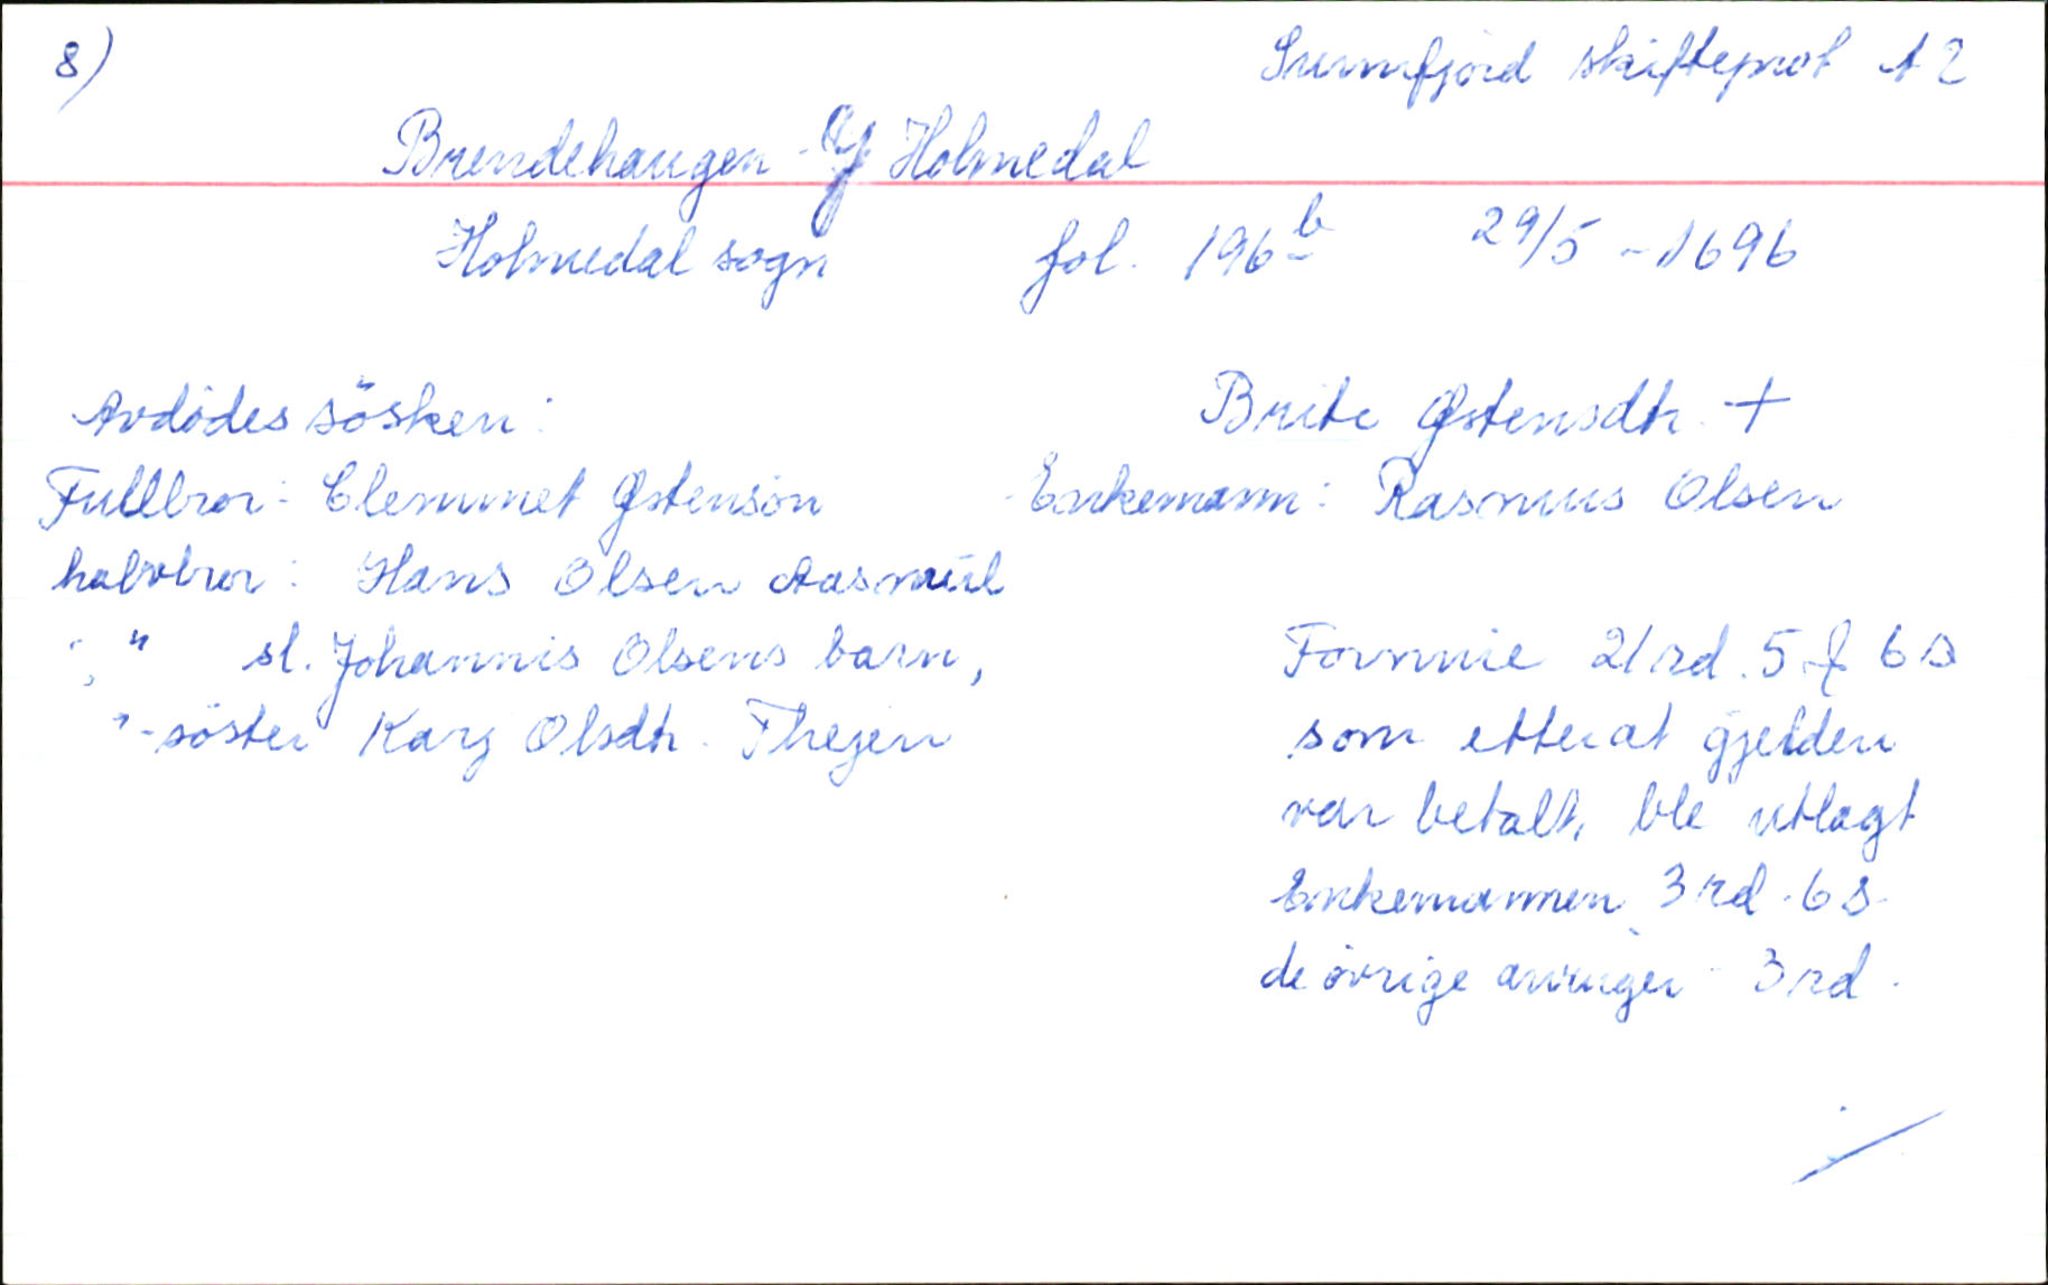 8)
Sunnfjord skifteprot A 2
Brendehaugen - Y Holmedal
Holmedal sogn fol. 196 b 29/5 - 1696
Avdødes søsken:
Fullbror: Clemmet Østensøn
halvbror: Hans Olsen Aasmul
" sl. Johannis Olsens barn,
"-søster Karj Olsdtr. Thejen
Brite Østensdtr. +
Enkemann: Rasmus Olsen
Formue 21 rd. 5 ƒ 6 s
som etterat gjelden
var betalt, ble utlagt
Enkemannen 3 rd. 6 s.
de øvrige arvinger 3 rd.